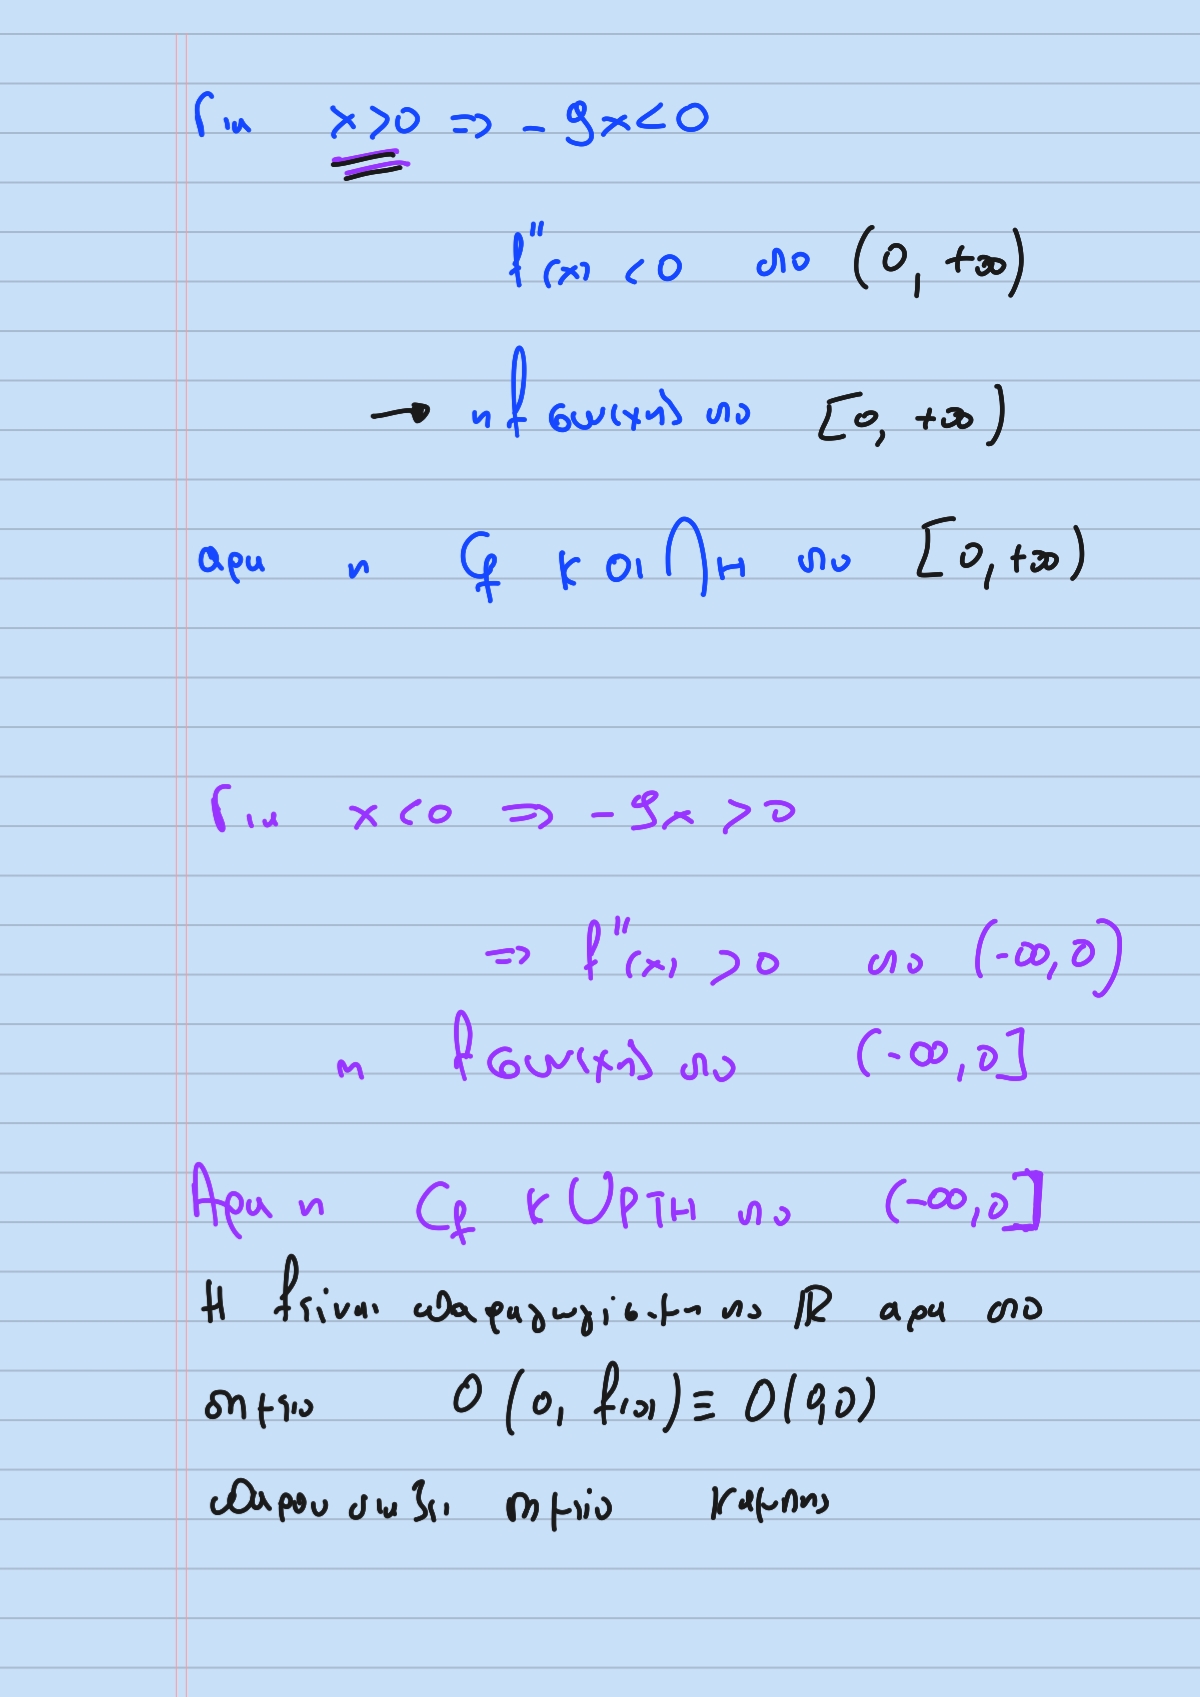 Για x>0 ⇒ -9x<0
f''(x) <0 στο (0, +∞)
→ η f συν(χη) στο [0, +∞)
αρα η Cf ΚΟΙΛΗ στο [0, +∞)
Για x<0 ⇒ -9x >0
⇒ f''(x) >0 στο (-∞,0)
η f συν(χη) στο (-∞,0]
Αρα η Cf ΚΥΡΤΗ στο (-∞,0]
Η f είναι παραγωγίσιμη στο ℝ αρα στο
σημειο O(0, f(0)) ≡ O(0,0)
παρουσιαζει σημειο καμπης